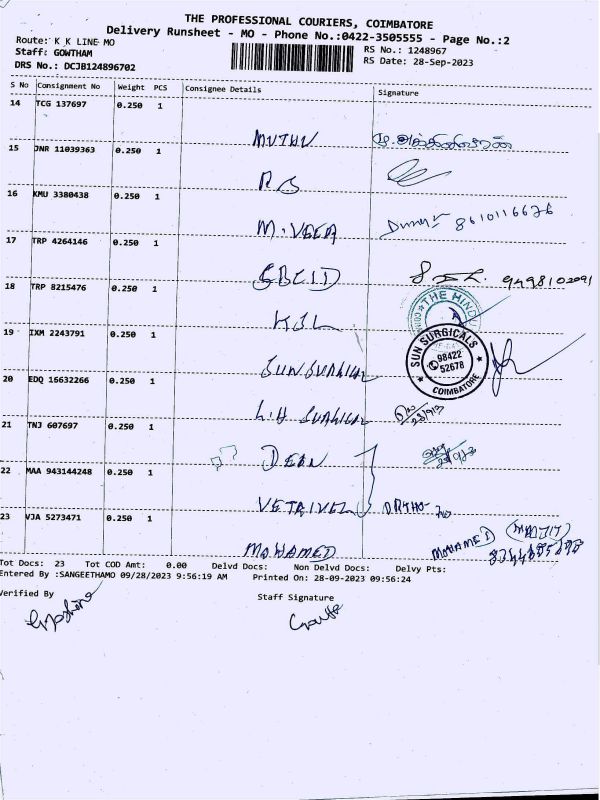 THE PROFESSIONAL COURIERS, COIMBATORE
Delivery Runsheet - MO - Phone No.:0422-3505555 - Page No.:2
Route: K K LINE MO
RS No.: 1248967
Staff: GOWTHAM
RS Date: 28-Sep-2023
DRS No.: DCJB124896702
S No Consignment No Weight PCS Consignee Details Signature
14 TCG 137697 0.250 1
MUTHU
15 JNR 11039363 0.250 1
R S
16 KMU 3380438 0.250 1
M. VEERA 8610116676
17 TRP 4264146 0.250 1
SBCID 9498102091
18 TRP 8215476 0.250 1
KJL
THE HINDU
19 IXM 2243791 0.250 1
SUN SURGICAL
SUN SURGICALS
98422
52678
COIMBATORE
20 EDQ 16632266 0.250 1
L.H SURGICAL
21 TNJ 607697 0.250 1
DEAN
22 MAA 943144248 0.250 1
VETRIVEL ORTHO
23 VJA 5273471 0.250 1
MOHAMED MOHAMED
Tot Docs: 23 Tot COD Amt: 0.00 Delvd Docs: Non Delvd Docs: Delvy Pts:
Entered By :SANGEETHAMO 09/28/2023 9:56:19 AM Printed On: 28-09-2023 09:56:24
Verified By Staff Signature